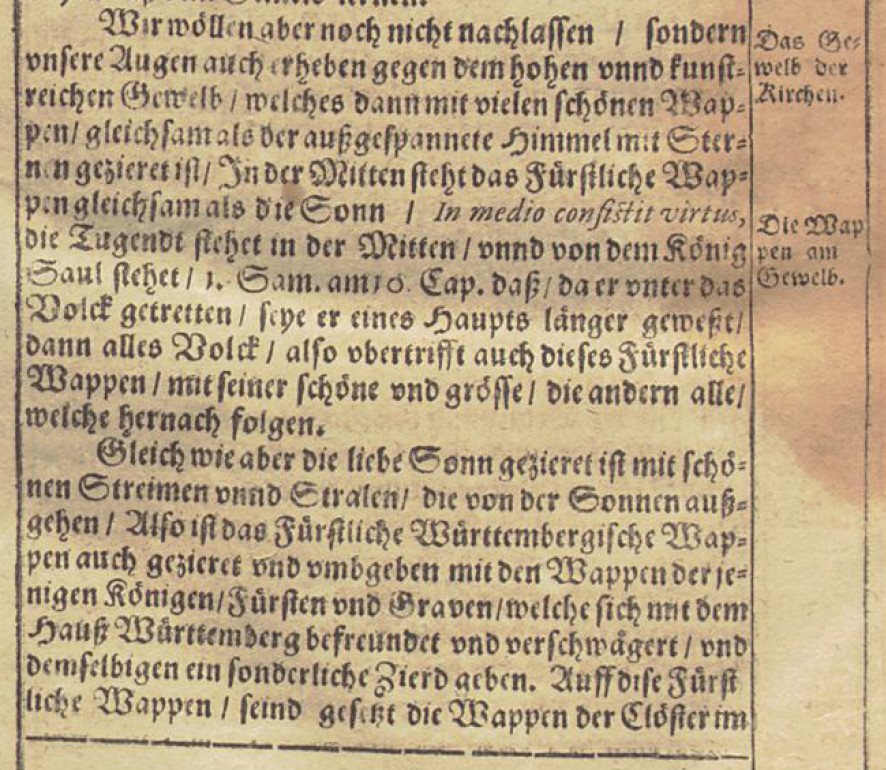 Wir wöllen aber noch nicht nachlassen / sondern
vnsere Augen auch erheben gegen dem hohen vnnd kunst-
reichen Gewelb / welches dann mit vielen schönen Wap-
pen / gleichsam als der außgespannete Himmel mit Ster-
nen gezieret ist / In der Mitten steht das Fürstliche Wap-
pen gleichsam als die Sonn / In medio consistit virtus,
die Tugendt stehet in der Mitten / vnnd von dem König
Saul stehet / 1. Sam. am 10. Cap. daß / da er vnter das
Volck getretten / seye er eines Haupts länger geweßt /
dann alles Volck / also vbertrifft auch dieses Fürstliche
Wappen / mit seiner schöne vnd grösse / die andern alle /
welche hernach folgen.
Gleich wie aber die liebe Sonn gezieret ist mit schö-
nen Streimen vnnd Stralen / die von der Sonnen auß-
gehen / Also ist das Fürstliche Württembergische Wap-
pen auch gezieret vnd vmbgeben mit den Wappen der je-
nigen Königen / Fürsten vnd Graven / welche sich mit dem
Hauß Württemberg befreundet vnd verschwägert / vnd
demselbigen ein sonderliche Zierd geben. Auff dise Fürst
liche Wappen / seind gesetzt die Wappen der Clöster im
Das Ge-
welb der
Kirchen.
Die Wap
pen am
Gewelb.